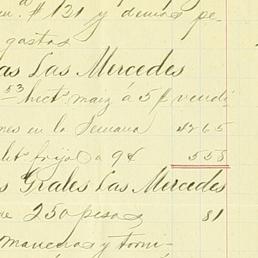 en. $121 y demas pe-
gastos
as Las Mercedes
53 hect.s maiz á 5 $ vendi
nes en la Semana 4265
lit frijol a 9 ¢ 558
s Grales Las Mercedes
de 250 pesos 81
manchas y torni-